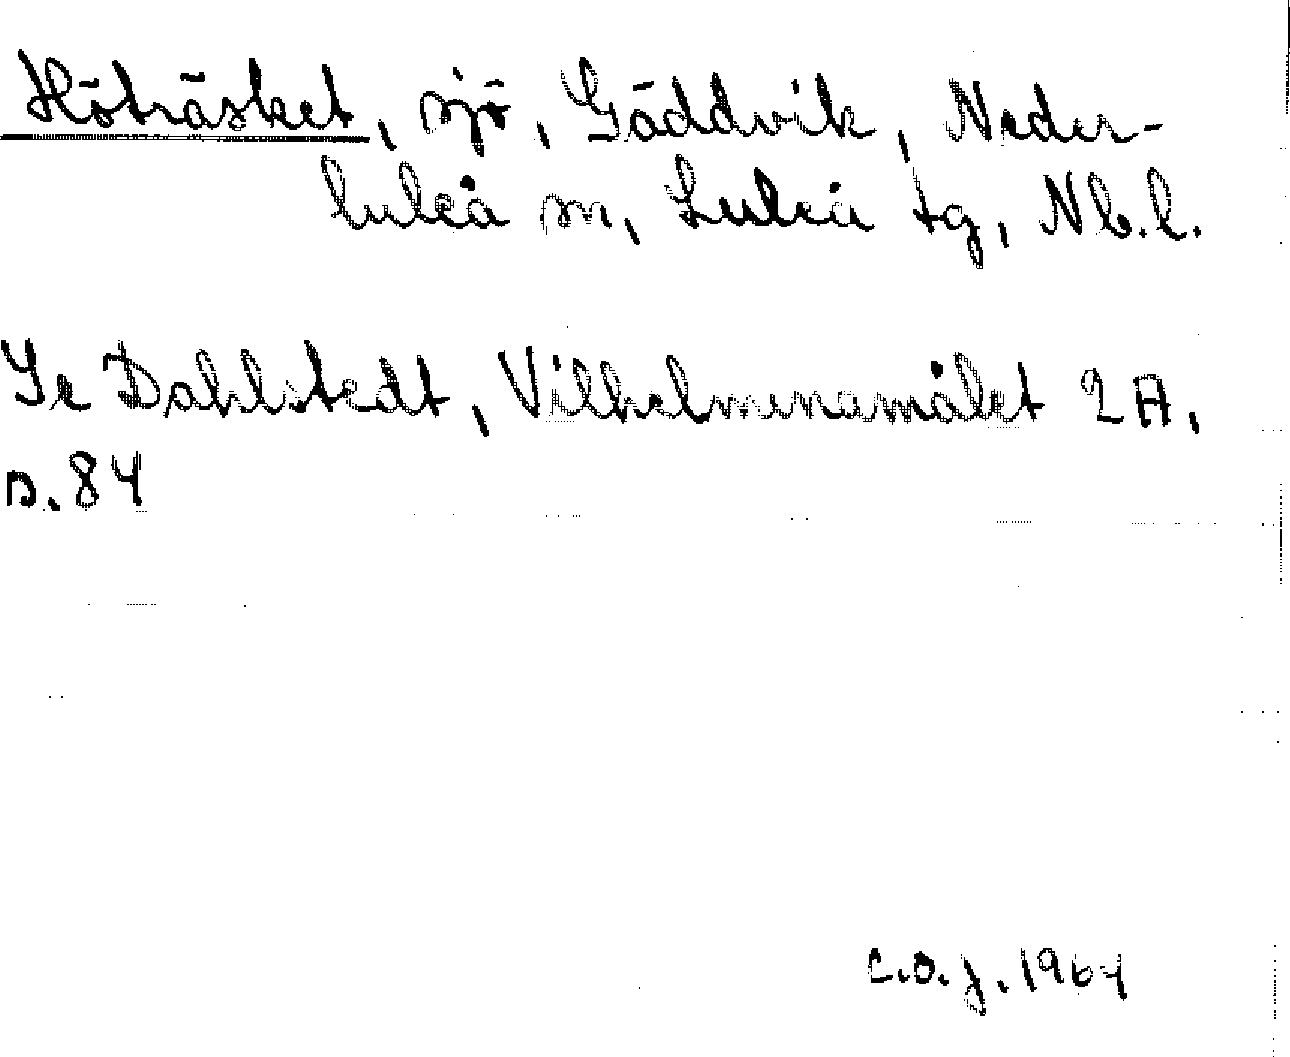 Höträsket, sjö, Gäddvik, Neder-
luleå sn, Luleå tg, Nb.l.
Se Dahlstedt, Vilhelminamålet 2A,
s.84
C.O.J. 1964